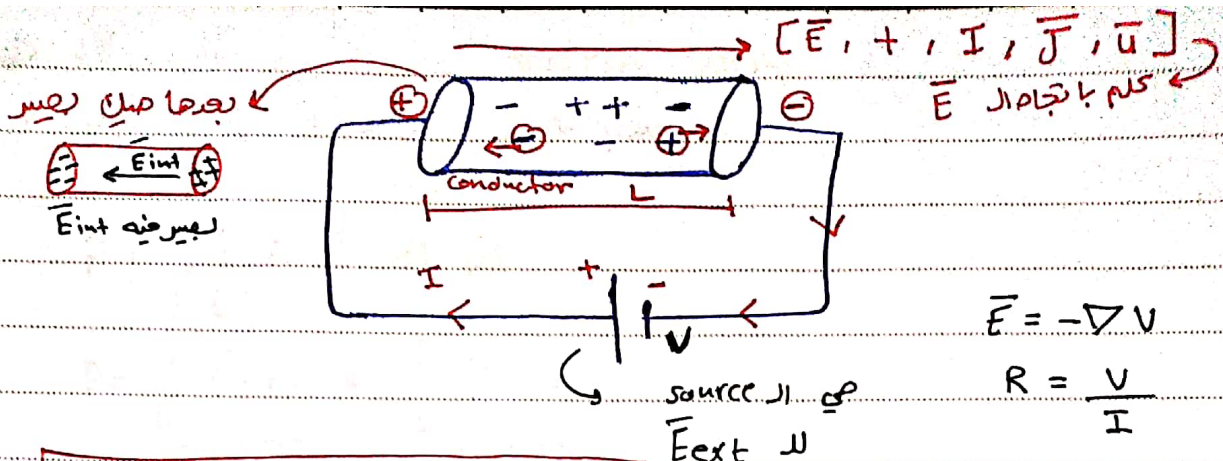 [E̅, +, I, J̅, u̅]
كلهم باتجاه ال E̅
بعدها هيك بصير
⊕ - + + - ⊖
⊖ - ⊕
--- E̅int ++
بصير فيه E̅int
conductor L
I + - V
E̅ = -∇V
هي ال source
لل E̅ext
R = V/I